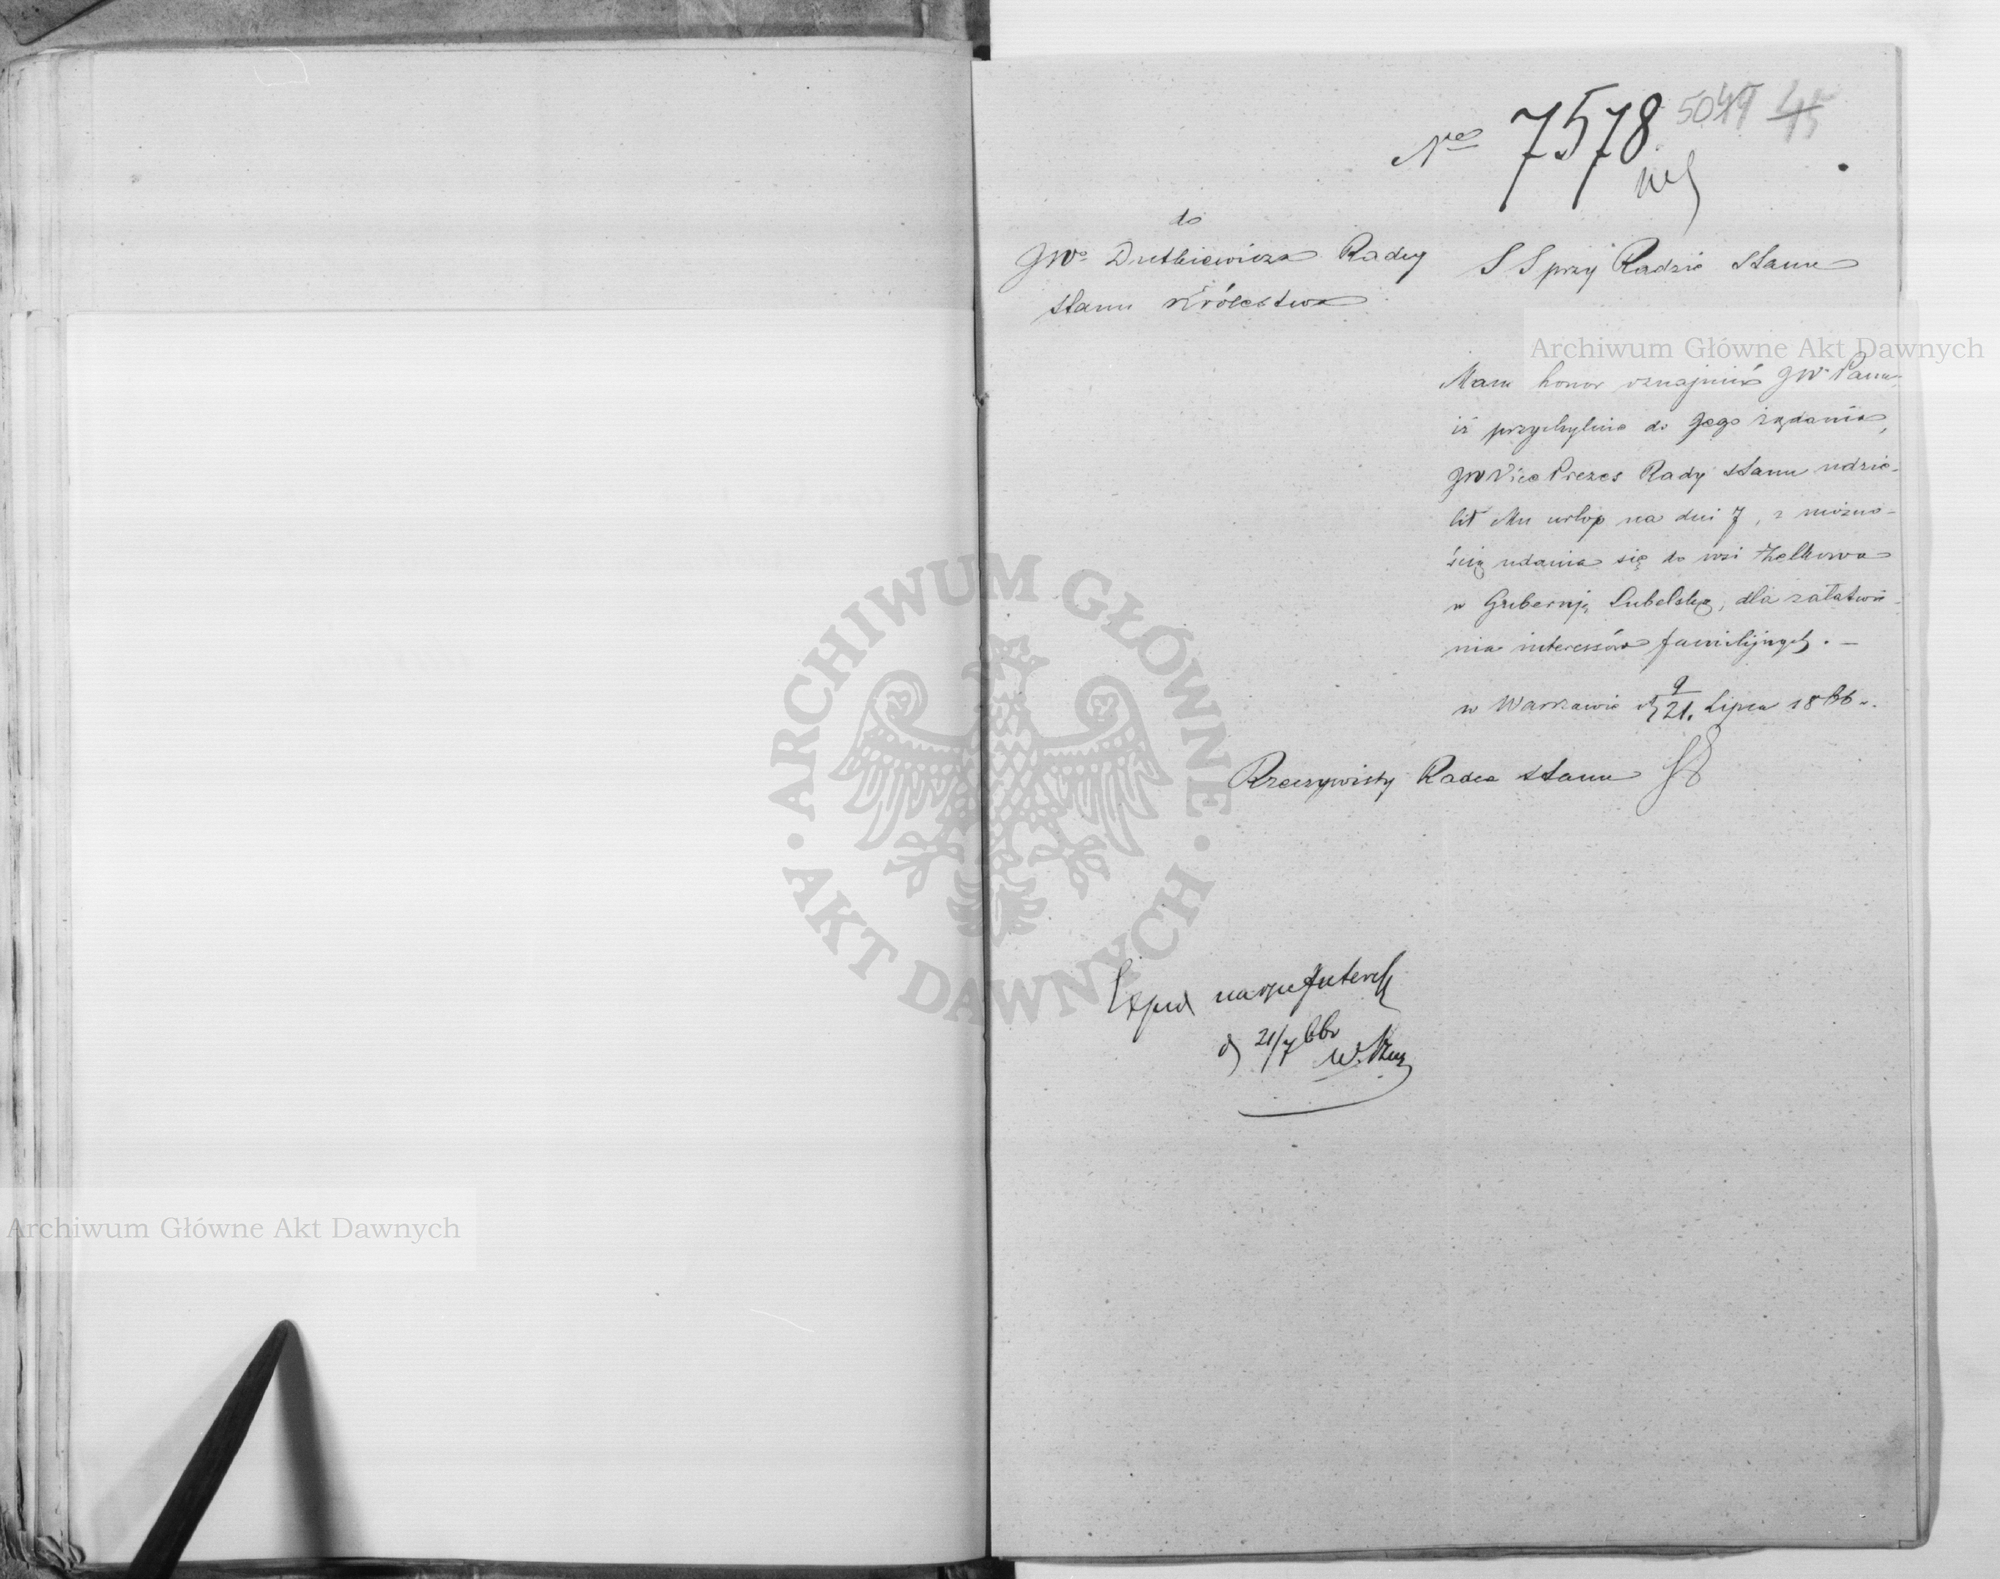 No 7578 5049 45
do
JWo Dutkiewicza Radcy
Stanu Królestwa
S S przy Radzie Stanu
Archiwum Główne Akt Dawnych
Mam honor oznajmić JW. Panu,
iż przychylnie do Jego żądania,
JW Vice Prezes Rady Stanu udzie-
lił Mu urlop na dni 7, z możno-
ścią udania się do wsi
w Gubernji Lubelskiej, dla załatwie-
nia interessów familijnych. —
w Warszawie d 9/21. Lipca 1866 r.
Rzeczywisty Radca Stanu
ARCHIWUM GŁÓWNE
AKT DAWNYCH
d 21/7 66
Archiwum Główne Akt Dawnych